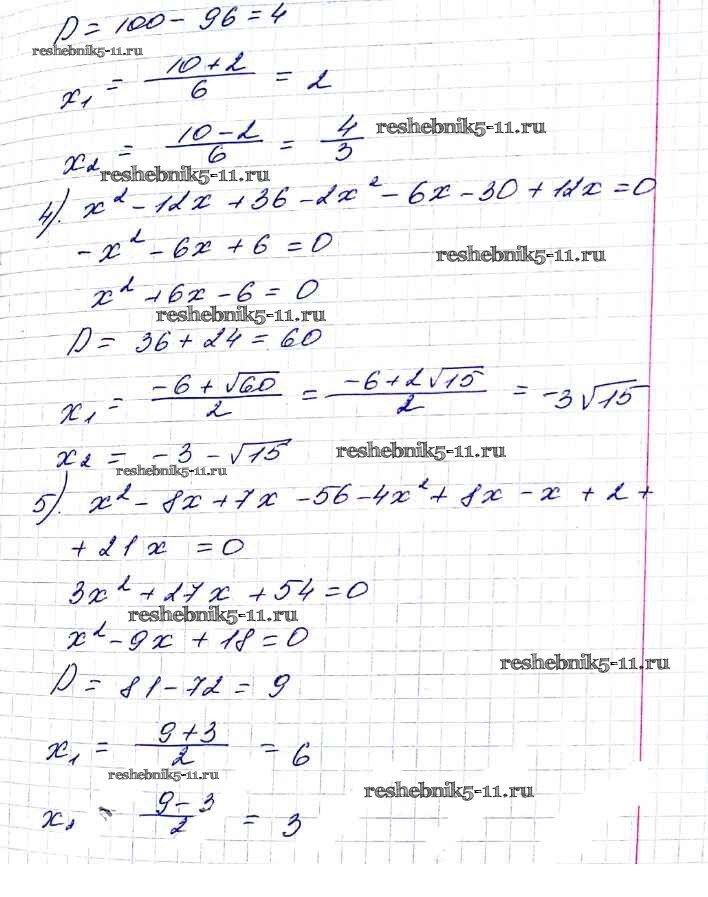 D = 100 - 96 = 4
reshebnik5-11.ru
x₁ = (10 + 2)/6 = 2
x₂ = (10 - 2)/6 = 4/3
reshebnik5-11.ru
reshebnik5-11.ru
4). x² - 12x + 36 - 2x² - 6x - 30 + 12x = 0
- x² - 6x + 6 = 0
reshebnik5-11.ru
x² + 6x - 6 = 0
reshebnik5-11.ru
D = 36 + 24 = 60
x₁ = (-6 + √60)/2 = (-6 + 2√15)/2 = -3√15
x₂ = -3 - √15
reshebnik5-11.ru
reshebnik5-11.ru
5). x² - 8x + 7x - 56 - 4x² + 8x - x + 2 +
+ 21x = 0
3x² + 27x + 54 = 0
reshebnik5-11.ru
x² - 9x + 18 = 0
reshebnik5-11.ru
D = 81 - 72 = 9
x₁ = (9 + 3)/2 = 6
reshebnik5-11.ru
reshebnik5-11.ru
x₂ - (9 - 3)/2 = 3